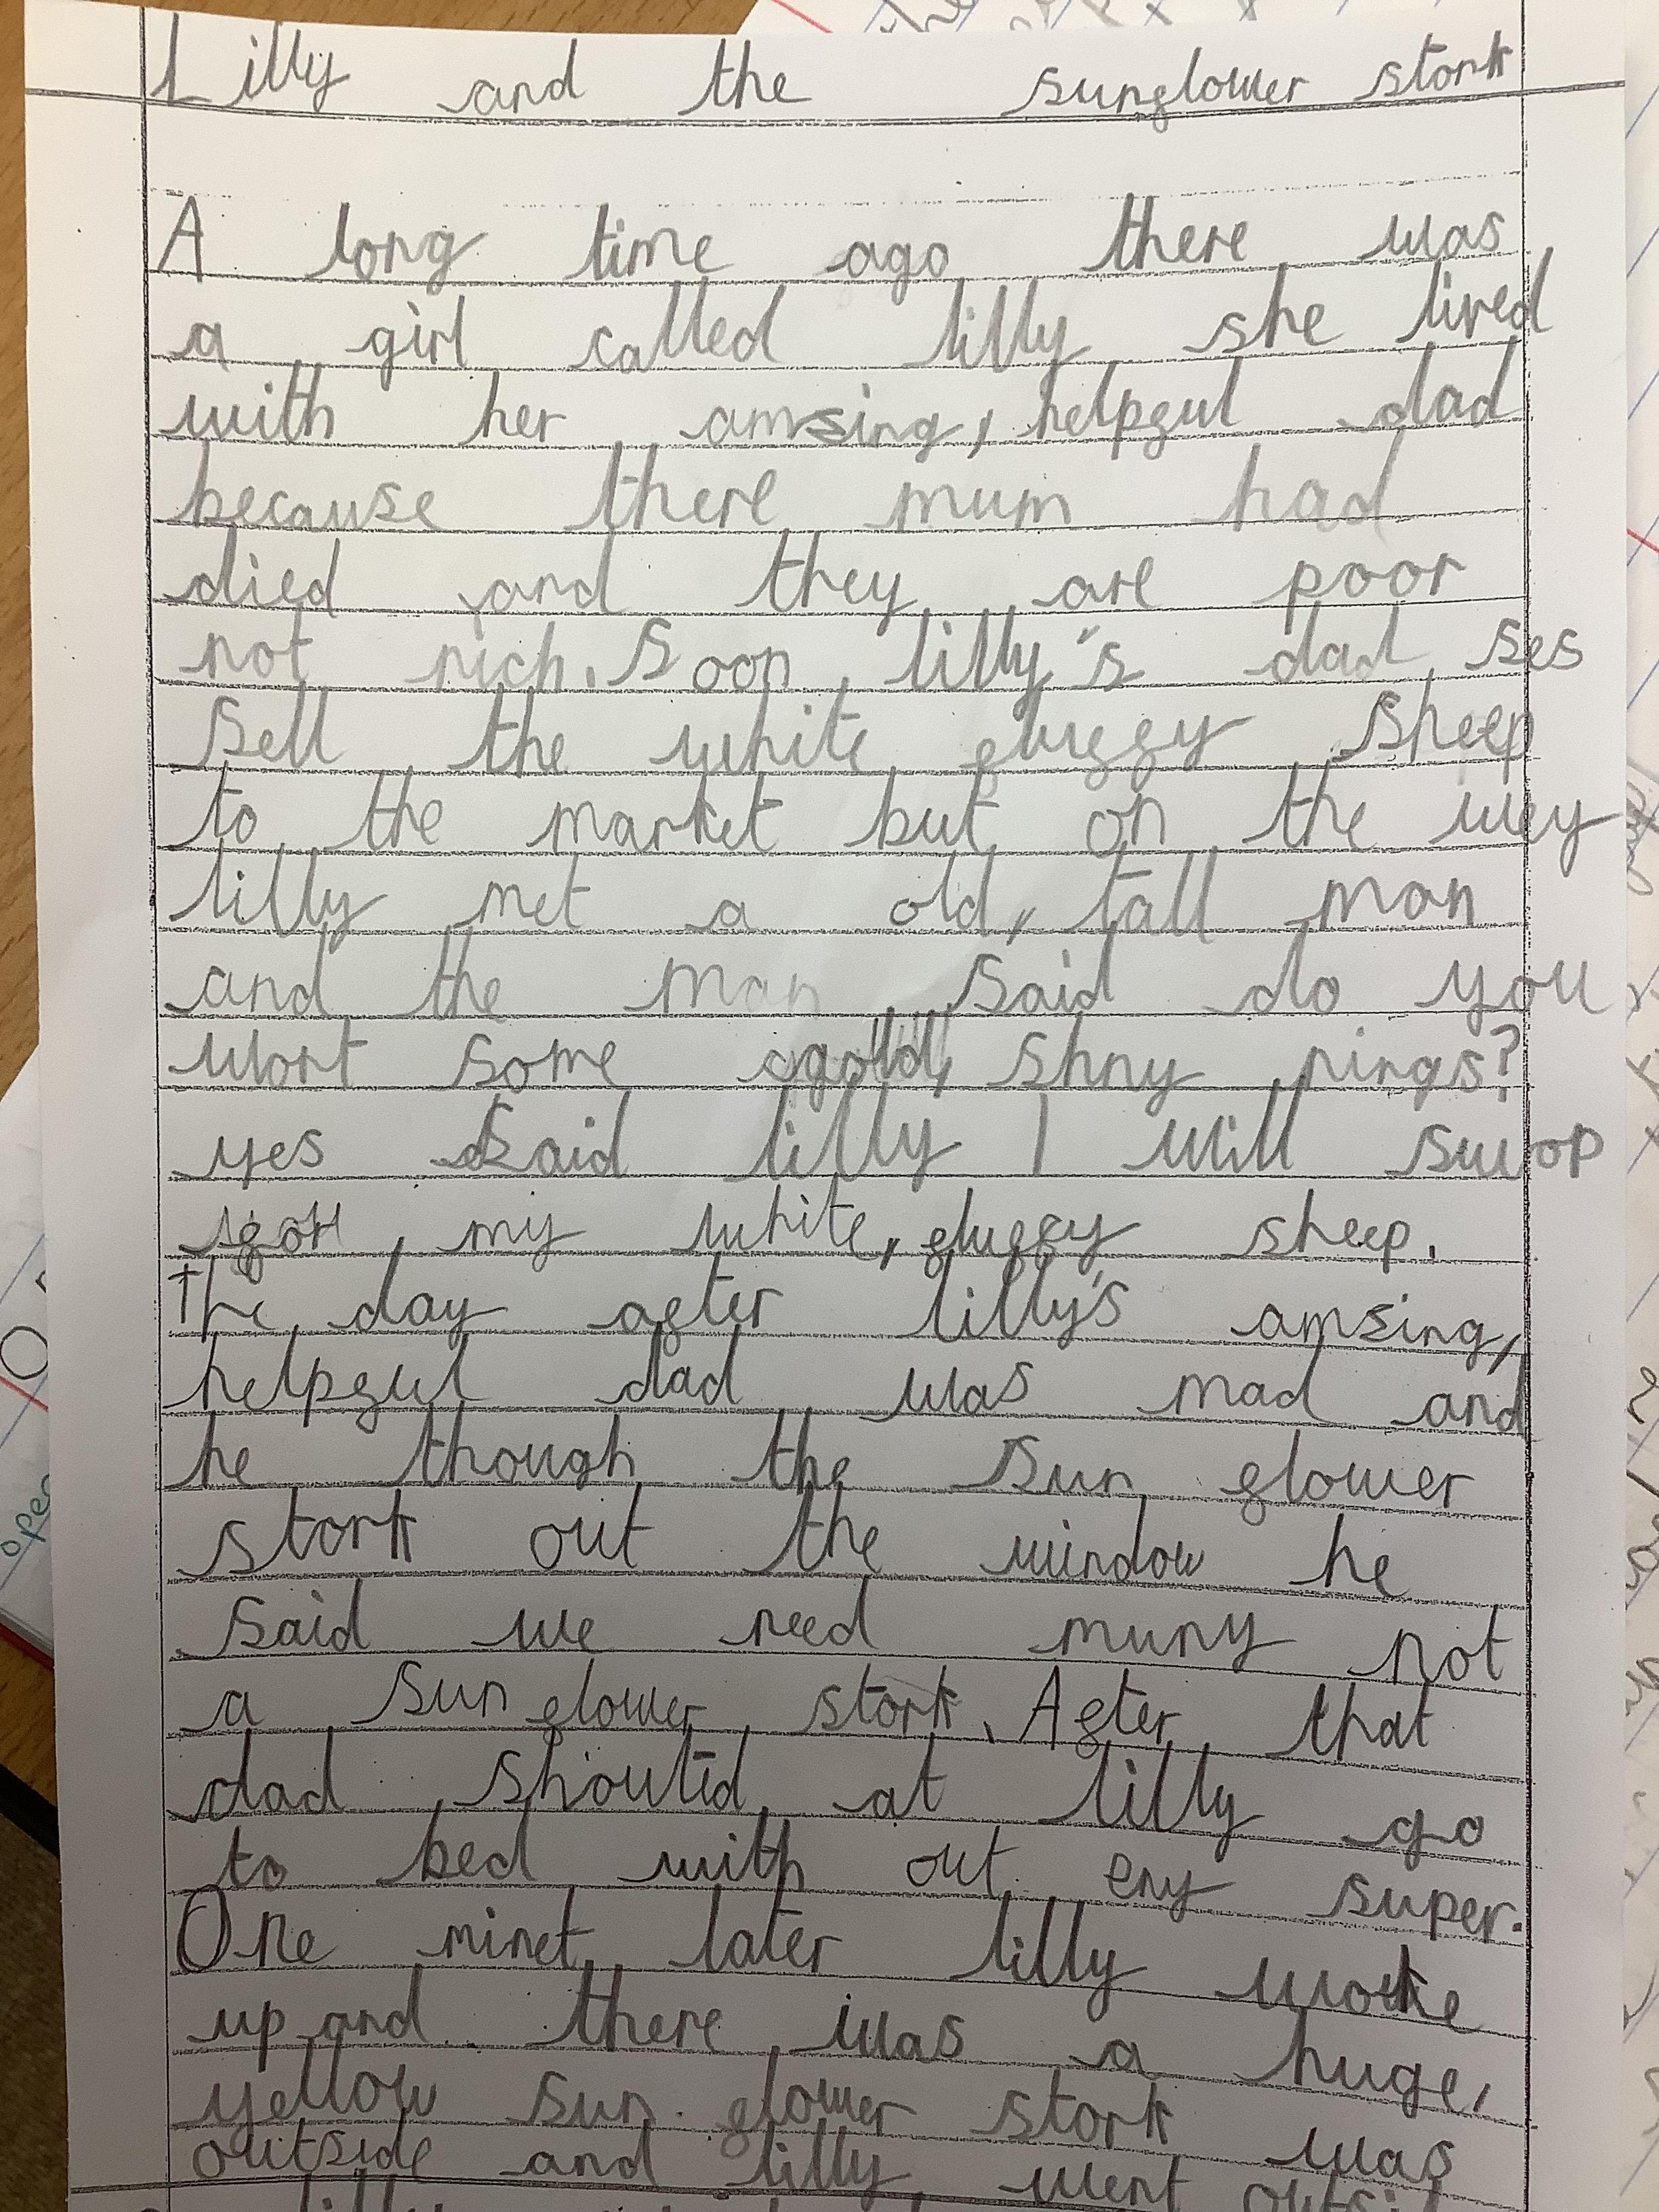 Lilly and the sunflower stork
A long time ago there was
a girl called lilly she lived
with her amsing, helpful dad
because there mum had
died and they are poor
not rich. Soon lilly's dad ses
sell the white fluffy sheep
to the market but on the wey
lilly met a old, tall man
and the man said do you
wort some gold, shny rings?
yes said lilly I will swop
for my white, fluffy sheep.
The day after lilly's amsing,
helpful dad was mad and
he though the sun flower
stork out the window he
said we need muny not
a sun flower stork. After that
dad shoutid at lilly go
to bed with out eny super.
One minet later lilly woke
up and there was a huge,
yellow sun flower stork was
outside and lilly went